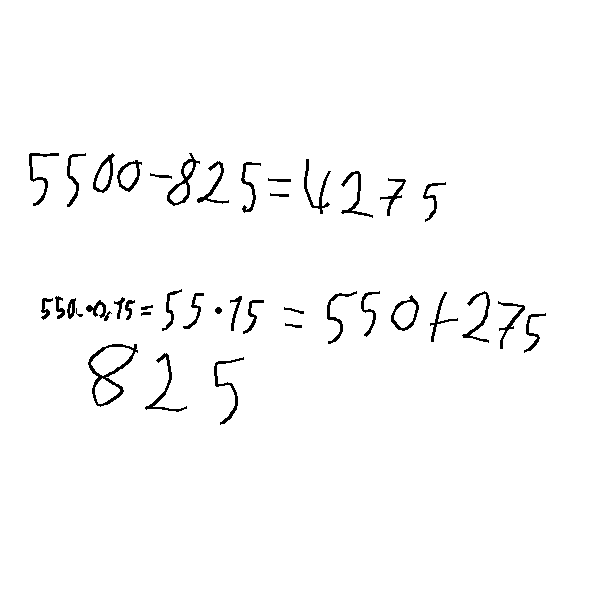 5500-825=4275
550.·0,15=55·15=550+275
825